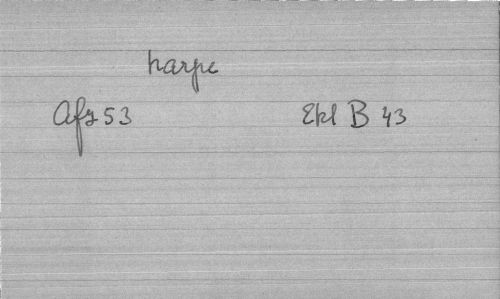 harpe
Afz 53 Ekl B 43